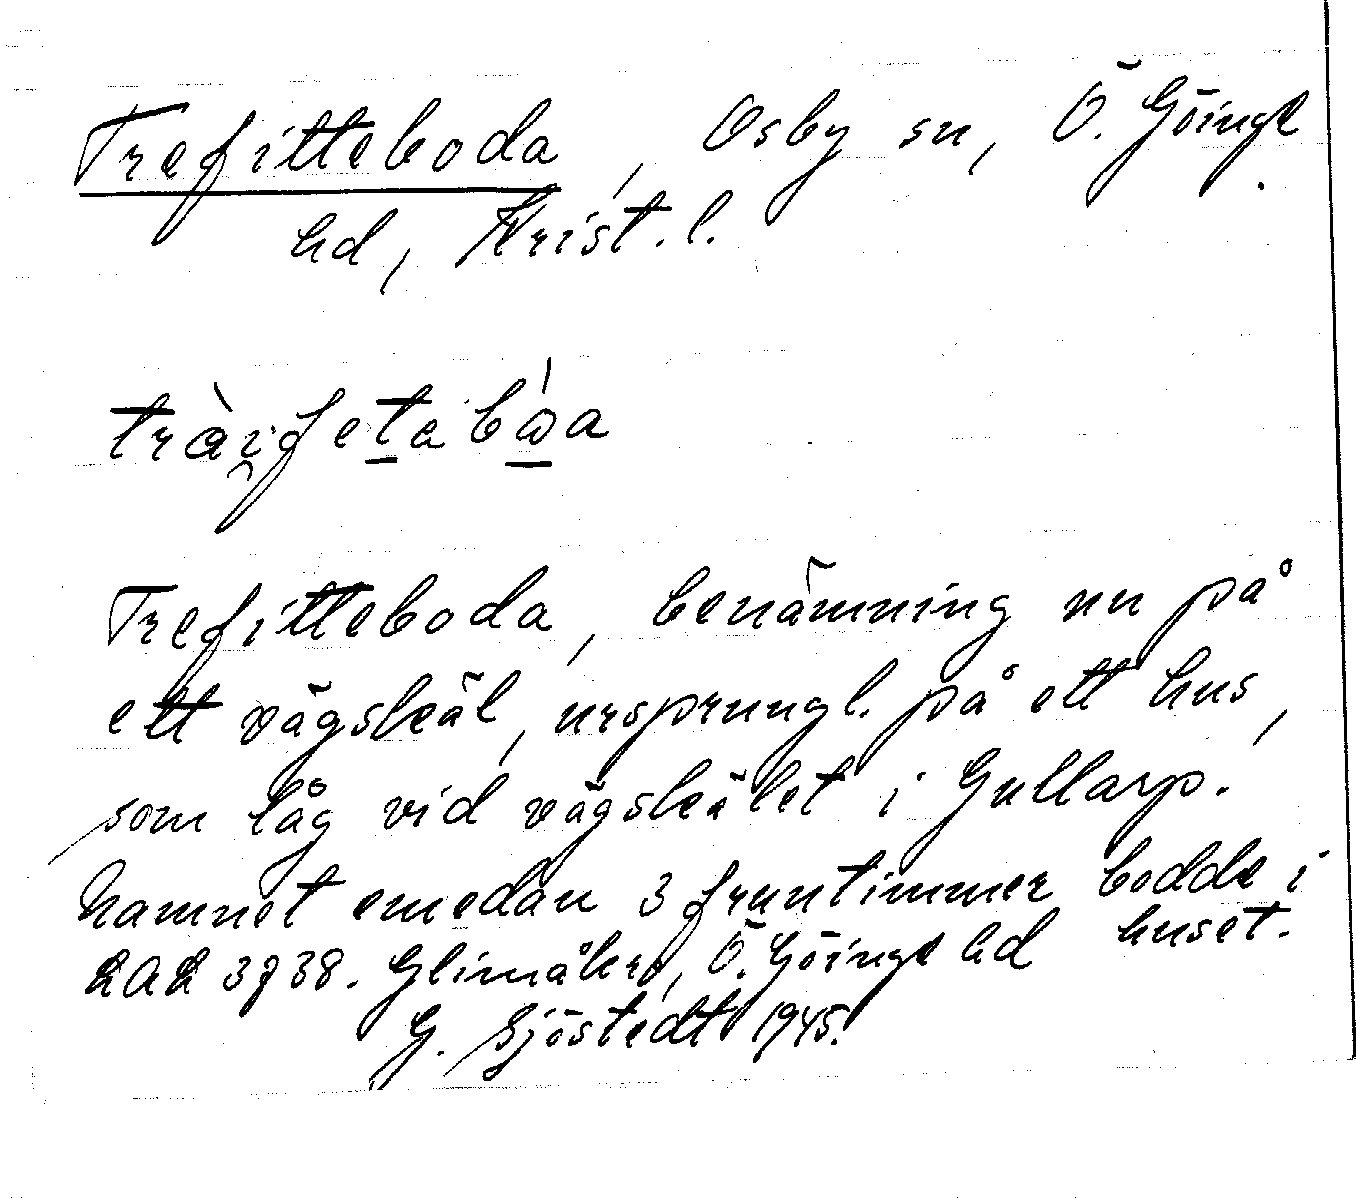 Trefitteboda, Osby sn, Ö. Göinge
hd, Krist. l.
Trefitteboda, benämning nu på
ett vägskäl, ursprungl. på ett hus,
som låg vid vägskälet i Gullarp.
Namnet emedan 3 fruntimmer bodde i
huset.
LAL 3738. Glimåkra, Ö. Göinge hd
G. Sjöstedt 1945.